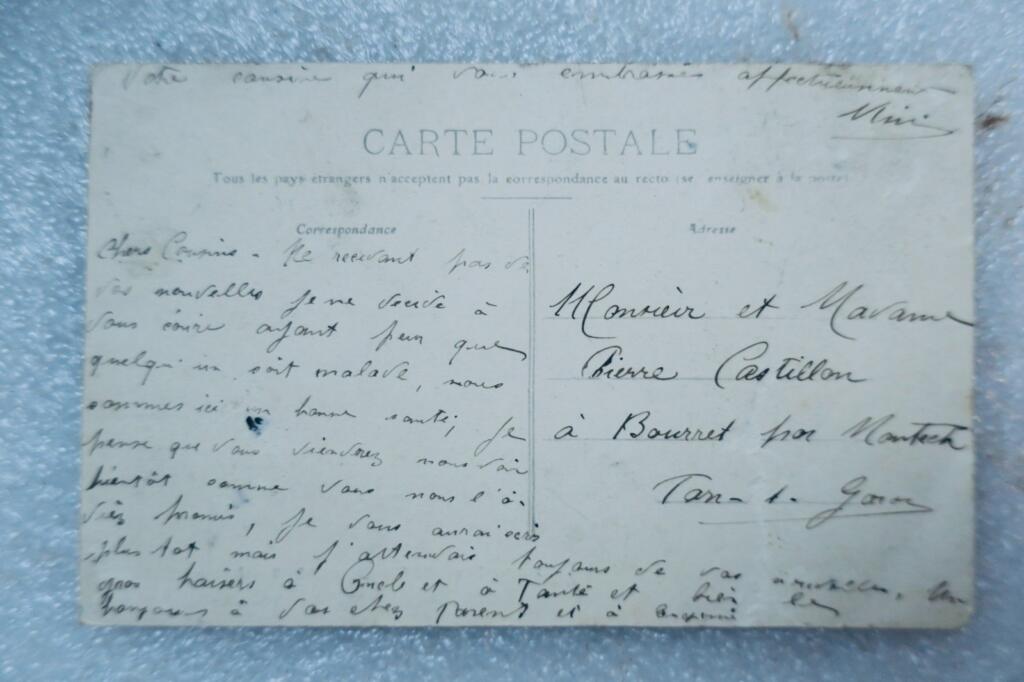 Votre cousine qui vous embrasses affectueusement
Mimi
CARTE POSTALE
Tous les pays étrangers n'acceptent pas la correspondance au recto (se renseigner à la poste)
Correspondance
Adresse
Chers Cousins - Ne recevant pas de
vos nouvelles je me décide à
vous écrire ayant peur que
quelqu'un soit malade, nous
sommes ici en bonne santé, Je
pense que vous viendrez nous voir
bientôt comme vous nous l'a-
viez promis, je vous aurai écris
plus tot mais j'attendais toujours de vos nouvelles. Un
gros baisers à Oncle et à Tante et bien les
à vos chez parent et à
Monsieur et Madame
Pierre Castillon
à Bourret par Montech
Tarn-t-Garon